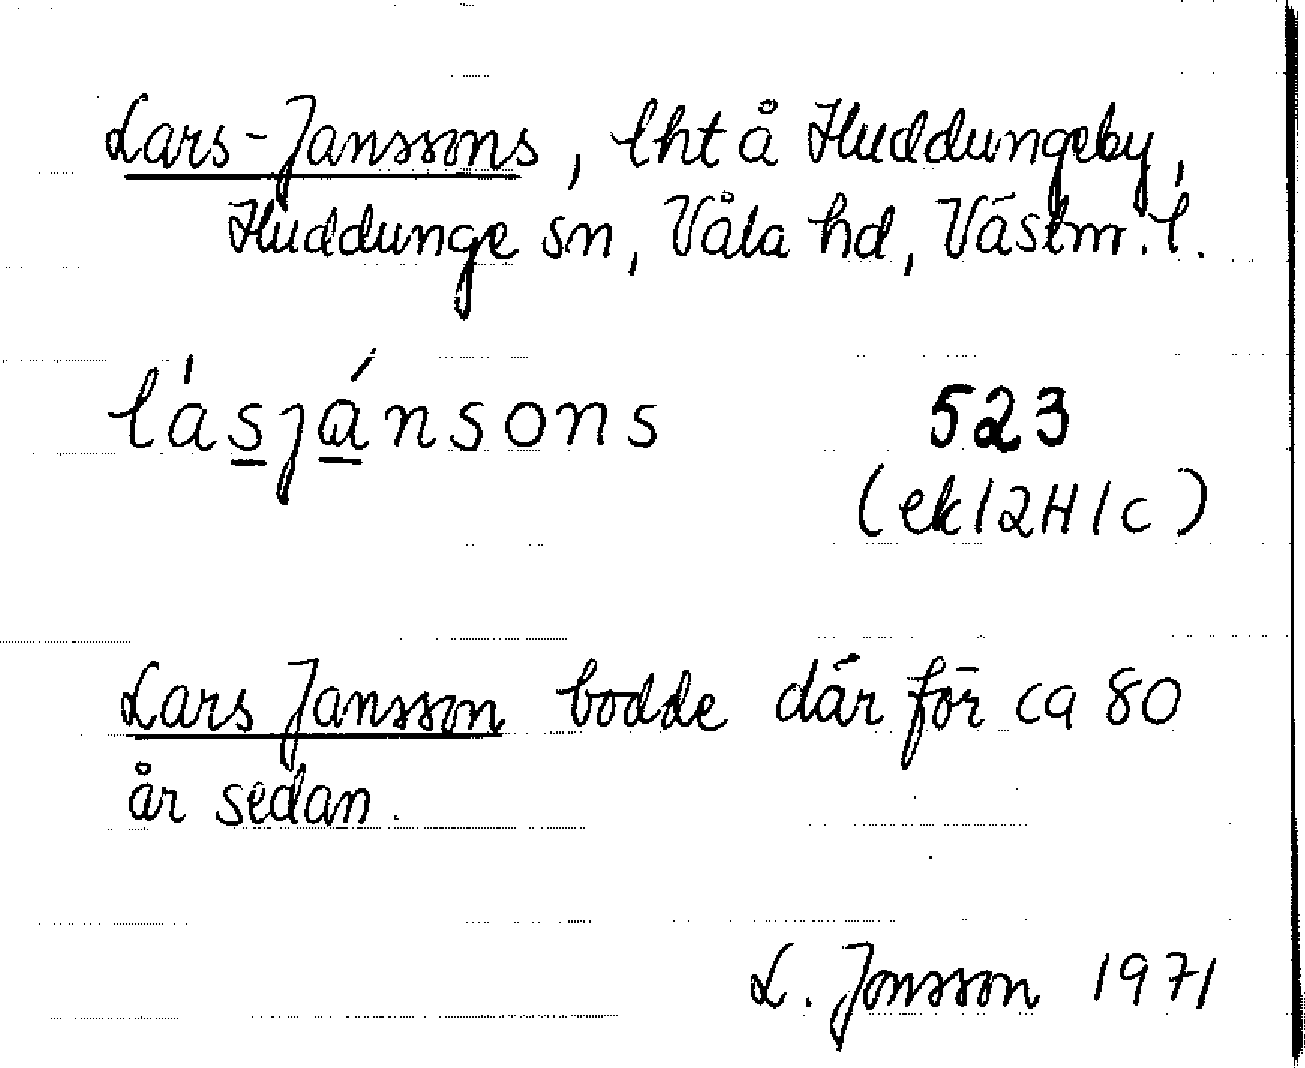 Lars-Janssons, lht å Huddungeby,
Huddunge sn, Våla hd, Västm. l.
låsjánsons 523
(ek 12H 1c)
Lars Jansson bodde där för ca 80
år sedan.
L. Jonsson 1971